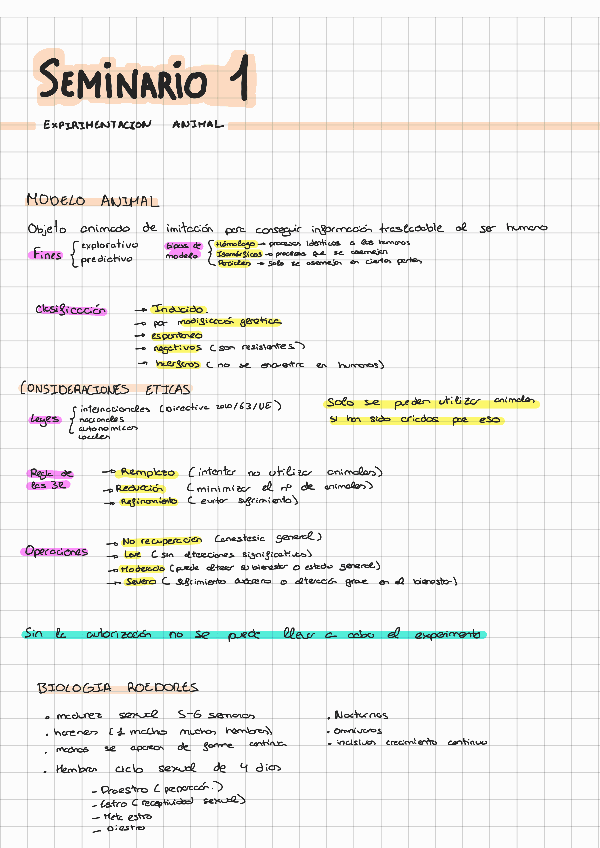 SEMINARIO 1
EXPIRIMENTACION ANIMAL
MODELO ANIMAL
Objeto animado de imitación para conseguir información trasladable al ser humano
Fines { explorativo
predictivo
tipos de modelo { Homólogo → procesos identicos a los humanos
Isomórficos → procesos que se asemejan
Parciales → solo se asemejan en ciertas partes
Clasificación → Inducido.
→ por modificación genetica
→ espontaneo
→ negativos (son resistentes)
→ huerfanos (no se encuentra en humanos)
CONSIDERACIONES ETICAS
Leyes { internacionales (Directiva 2010/63/UE)
nacionales
autonomicas
locales
Solo se pueden utilizar animales
si han sido criados par eso
Regla de las 3R → Remplazo (intentar no utilizar animales)
→ Reducción (minimizar el nº de animales)
→ Refinamiento (evitar sufrimiento)
Operaciones → No recuperación (anestesia general)
→ Leve (sin alteraciones significativas)
→ Moderado (puede alterar su bienestar o estado general)
→ Severo (sufrimiento o alteración grave en el bienestar)
Sin la autorización no se puede llevar a cabo el experimento
BIOLOGIA ROEDORES
• madurez sexual 5-6 semanas
• harenes (1 macho muchas hembras)
• machos se aparean de forma continua
• Hembras ciclo sexual de 4 dias
- Proestro (peparación.)
- Estro (receptividad sexual)
- Meta estro
- Diestro
• Nocturnos
• omnivoros
• incisivos crecimiento continuo